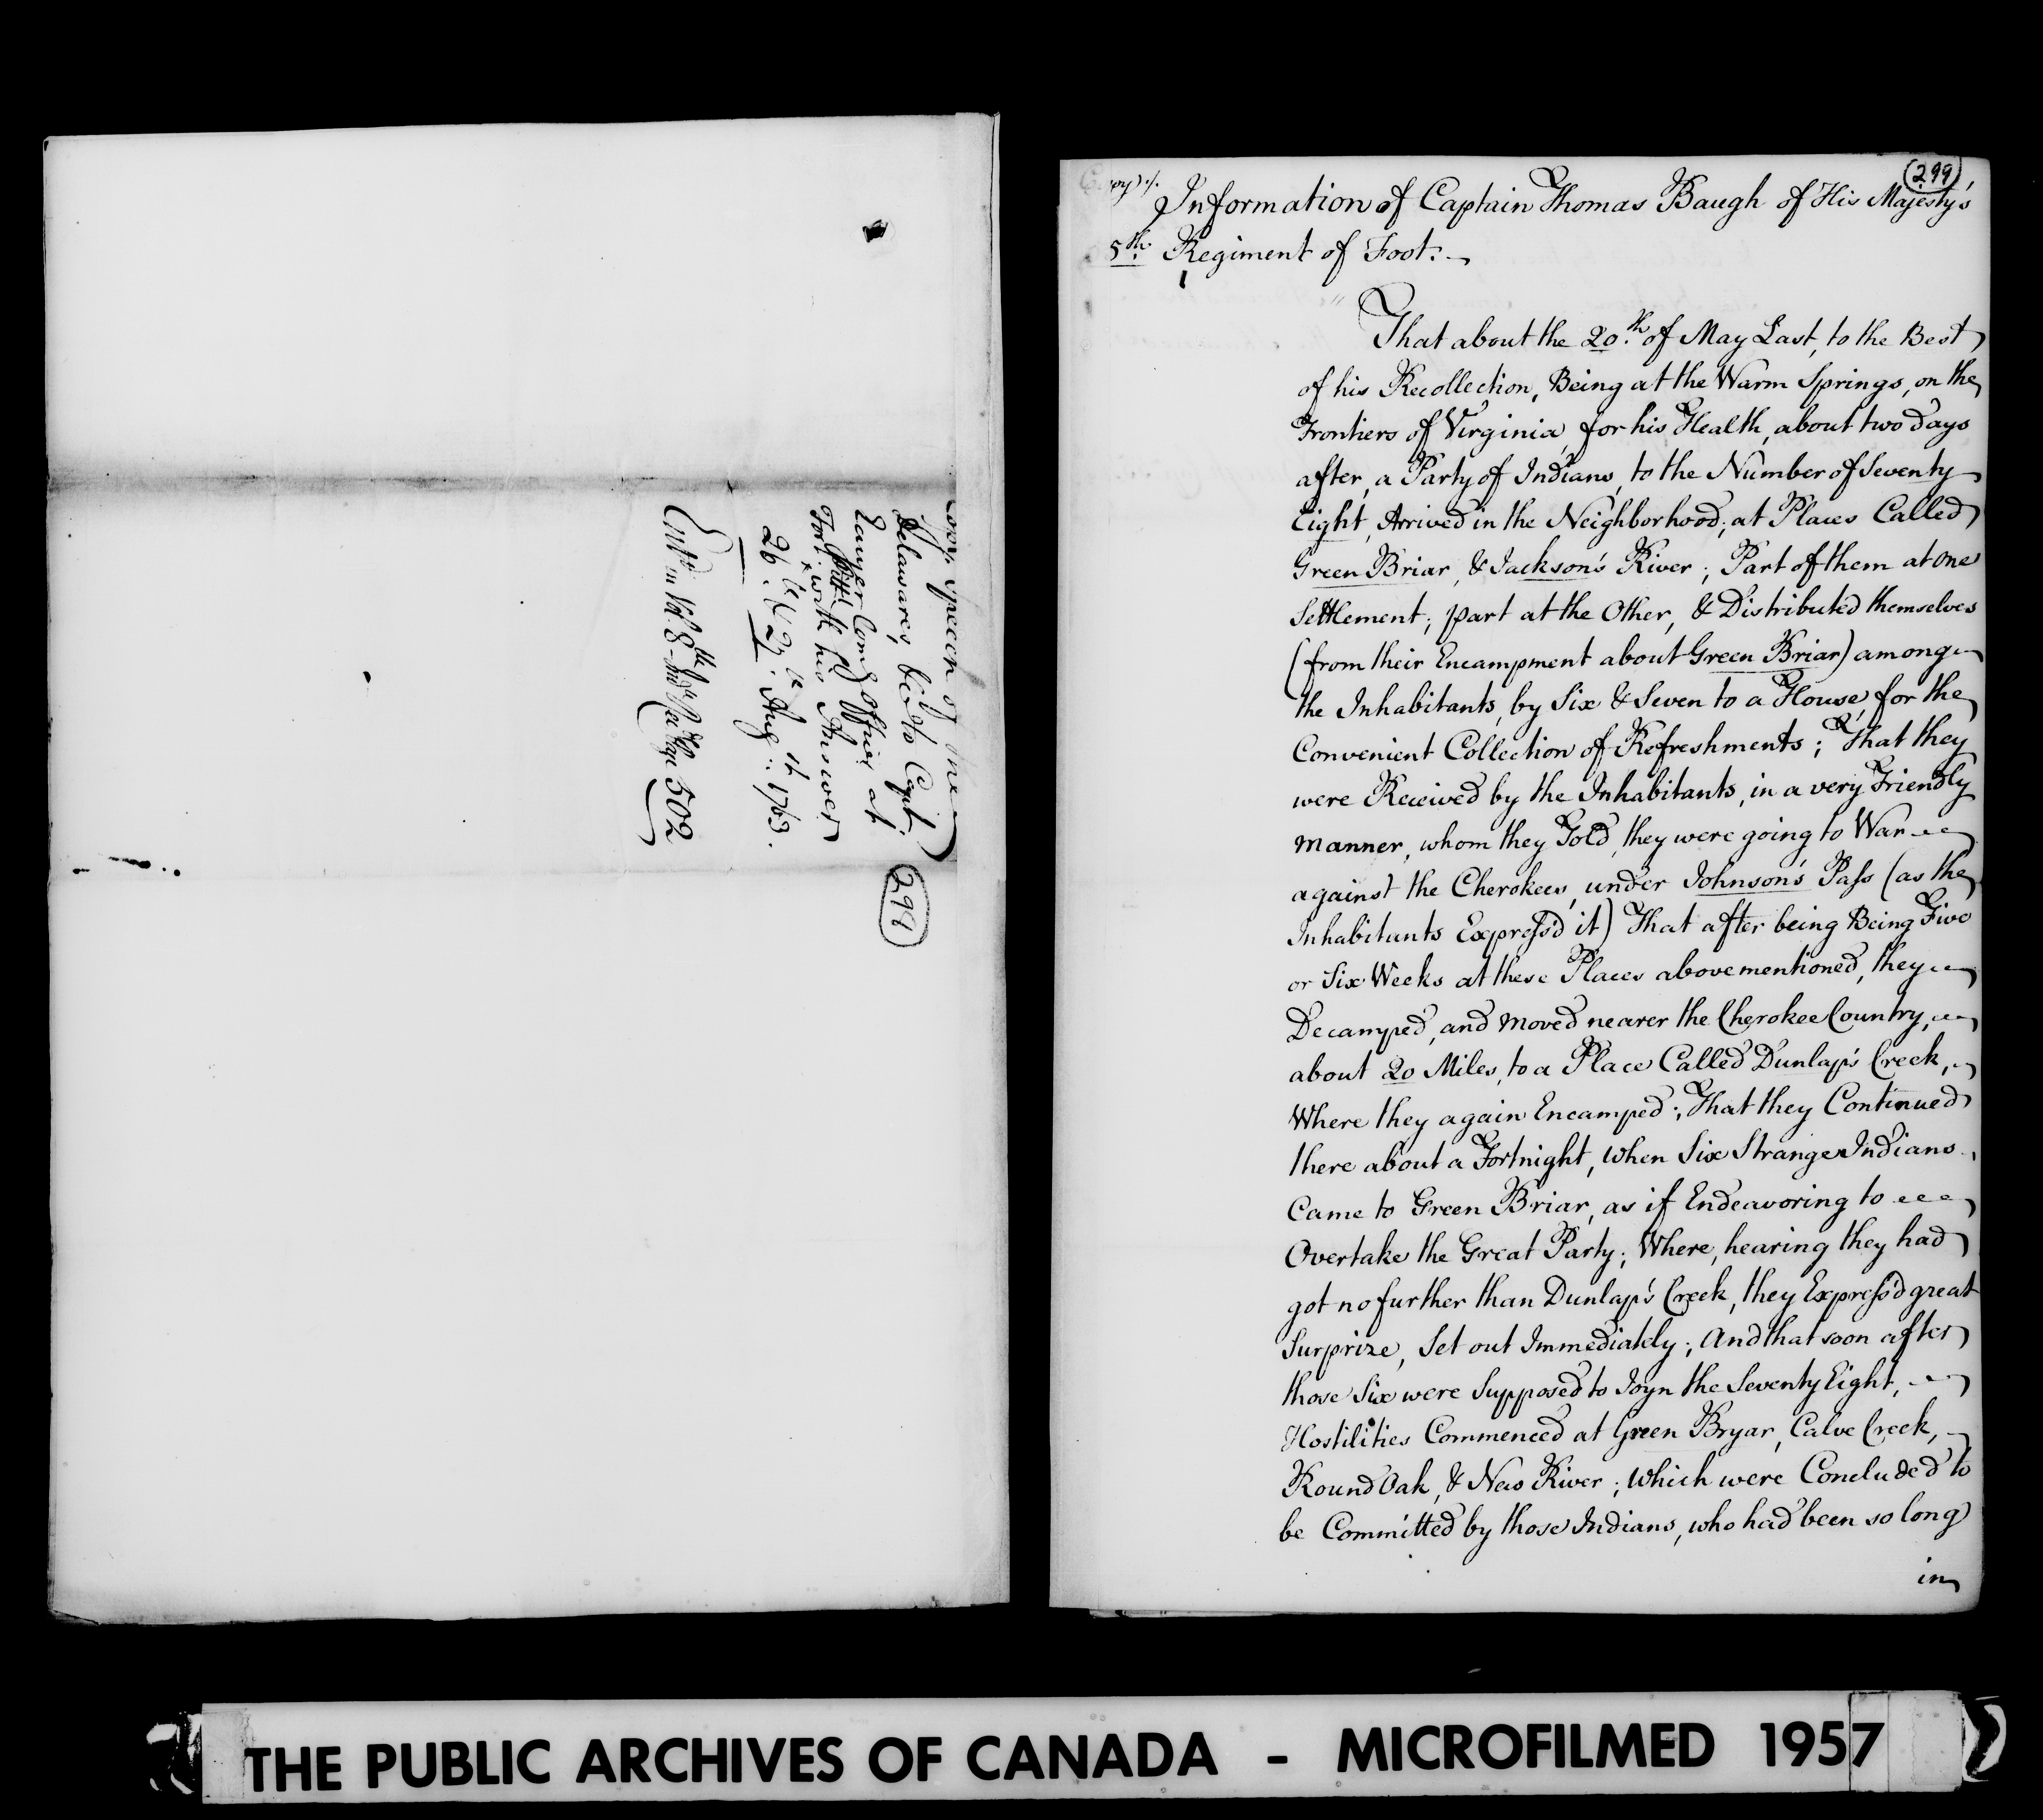 Copy. Speech of the
Delawares, &c to Capt.
Ecuyer Com.g Officer at
Fort Pitt: with his Answer
26.th & 27.th Aug.st 1763.
Ent.d in Vol. 8th Page 502
298
Copy)./.
299
Information of Captain Thomas Baugh of His Majesty's
5th. Regiment of Foot.
That about the 20.th of May Last, to the Best
of his Recollection, Being at the Warm Springs, on the
Frontiers of Virginia, for his Health, about two Days
after, a Party of Indians, to the Number of Seventy
Eight, Arrived in the Neighborhood; at Places Called
Green Briar, & Jackson's River; Part of them at one
Settlement; part at the Other, & Distributed themselves
(from their Encampment about Green Briar) among
the Inhabitants, by Six & Seven to a House, for the
Convenient Collection of Refreshments; That they
were Received by the Inhabitants, in a very Friendly
manner, whom they Told, they were going to War
against the Cherokees, under Johnson's Pass (as the
Inhabitants Express'd it) That after being Being Five
or Six Weeks at these Places abovementioned, they
Decamped, and moved nearer the Cherokee Country,
about 20 Miles, to a Place Called Dunlap's Creek,
Where they again Encamped; That they Continued
there about a Fortnight, when Six Strange Indians
Came to Green Briar, as if Endeavoring to
Overtake the Great Party; Where, hearing they had
got no further than Dunlap's Creek, they Express'd great
Surprize, Set out Immediately; And that soon after
those Six were Supposed to Joyn the Seventy Eight,
Hostilities Commenced at Green Bryar, Calve Creek,
Round Oak, & New River; which were Concluded to
be Committed by those Indians, who had been so long
in
THE PUBLIC ARCHIVES OF CANADA - MICROFILMED 1957